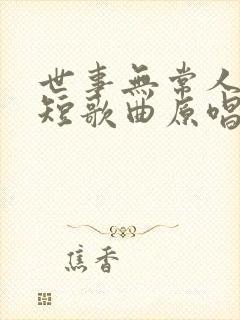 世事無常人
短歌曲原唱
焦香